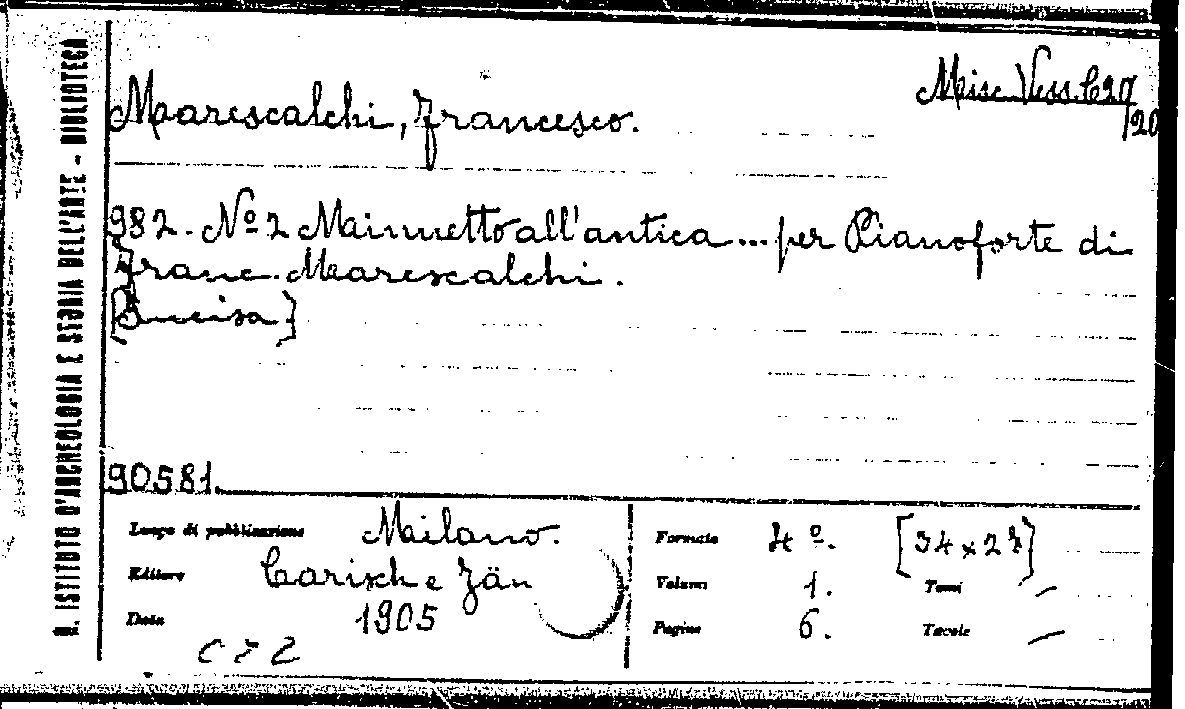 R. ISTITUTO D'ARCHEOLOGIA E STORIA DELL'ARTE - BIBLIOTECA
Misc. Vess. C 27/20
Marescalchi, Francesco.
982. Nº 2 Minuetto all'antica... per Pianoforte di
Franc. Marescalchi.
[Incisa]
90581.
Luogo di pubblicazione Milano.
Editore Carisch e Jän
Data 1905
Formato 4º. [34 x 27]
Volumi 1. Tomi —
Pagine 6. Tavole —